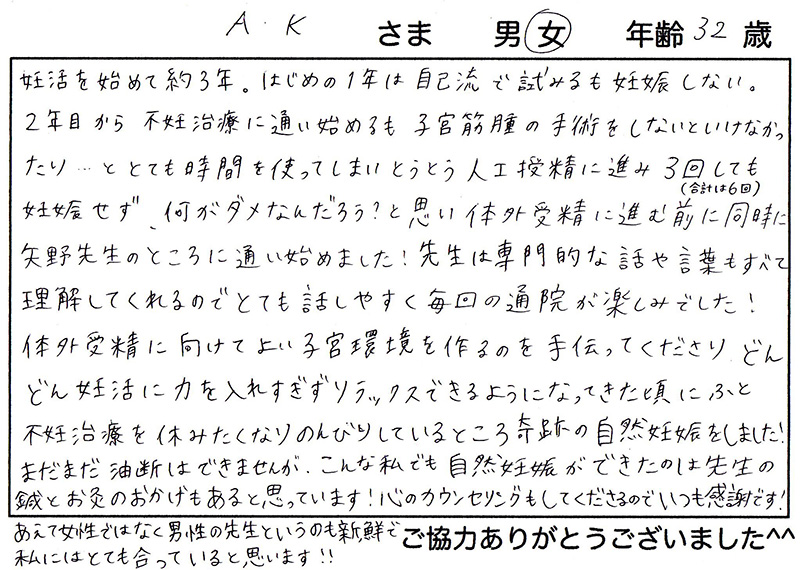 A.K さま 男 女 年齢 32 歳
妊活を始めて約3年。はじめの1年は自己流で試みるも妊娠しない。
2年目から不妊治療に通い始めるも子宮筋腫の手術をしないといけなかっ
たり…ととても時間を使ってしまいとうとう人工授精に進み3回しても
(合計は6回)
妊娠せず、何がダメなんだろう?と思い体外受精に進む前に同時に
矢野先生のところに通い始めました!先生は専門的な話や言葉もすべて
理解してくれるのでとても話しやすく毎回の通院が楽しみでした!
体外受精に向けてよい子宮環境を作るのを手伝ってくださり、どん
どん妊活に力を入れすぎずリラックスできるようになってきた頃にふと
不妊治療を休みたくなりのんびりしているところ奇跡の自然妊娠をしました!
まだまだ油断はできませんが、こんな私でも自然妊娠ができたのは先生の
鍼とお灸のおかげもあると思っています!心のカウンセリングもしてくださるのでいつも感謝です!
あえて女性ではなく男性の先生というのも新鮮で
私にはとても合っていると思います!!
ご協力ありがとうございました^^